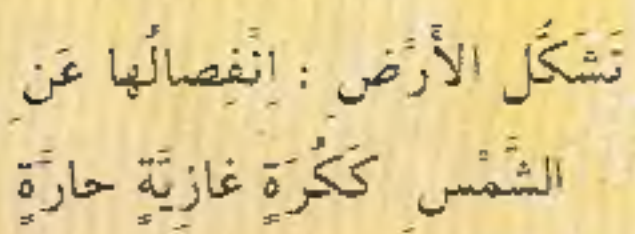 تَشَكُّل الأَرْضِ : اِنْفِصالُها عَنِ
الشَّمْسِ كَكُرَةٍ غازِيَّةٍ حارَّةٍ